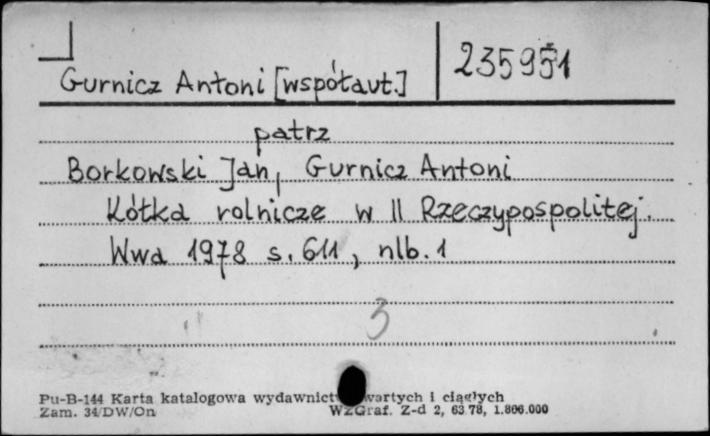 Gurnicz Antoni [współaut.]
235951
patrz
Borkowski Jan, Gurnicz Antoni
Kółka rolnicze w II Rzeczypospolitej.
Wwa 1978 s. 611, nlb. 1
3
Pu-B-144 Karta katalogowa wydawnict wartych i ciągłych
Zam. 34/DW/On WZGraf. Z-d 2, 63.78, 1.806.000